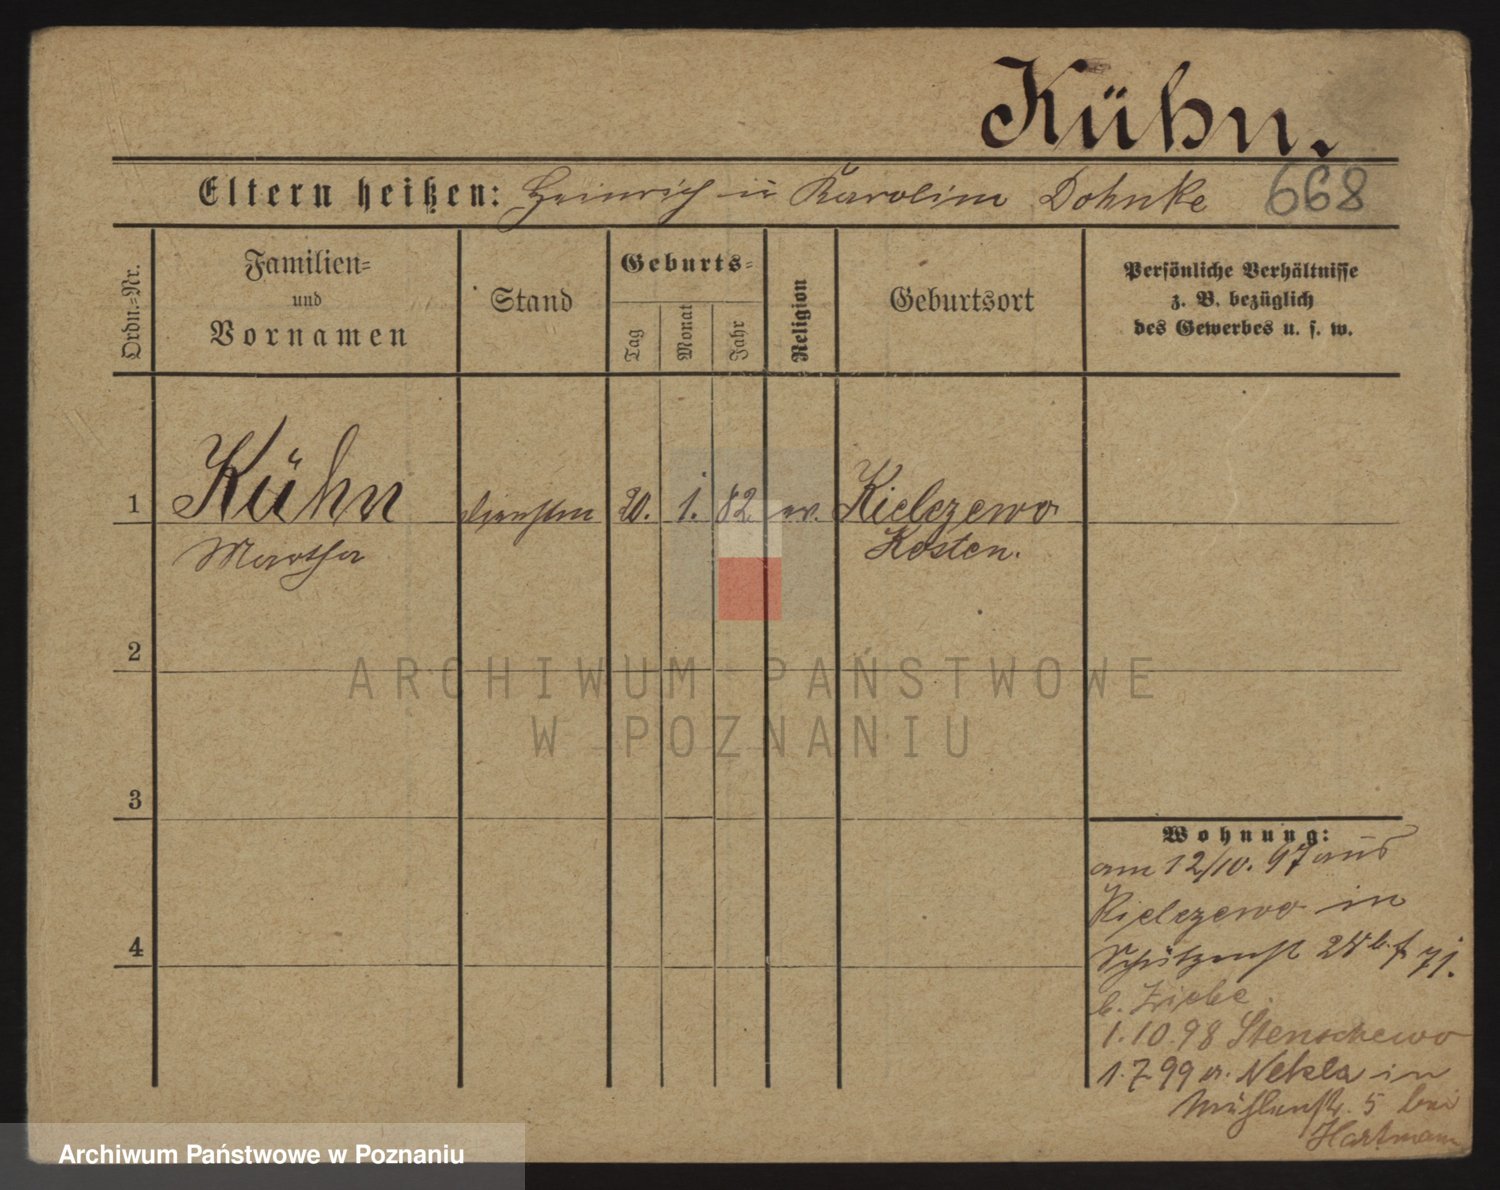 Kühn.
Eltern heißen: Heinrich u Karolina Dohnke 668
Ordn.=Nr.
Familien=
und
Vornamen
Stand
Geburts=
Tag
Monat
Jahr
Religion
Geburtsort
Persönliche Verhältnisse
z. B. bezüglich
des Gewerbes u. s. w.
1 Kühn 20. 1. 82 ev. Kielczewo
Martha Kosten.
2
3
4
Wohnung:
am 12/10. 97 aus
Kielczewo in
Schützenstr
b.
1.10.98 Stenschewo
1.7.99 a. Nekla in
Mühlenstr. 5 bei
Hartmann
ARCHIWUM PAŃSTWOWE
W POZNANIU
Archiwum Państwowe w Poznaniu